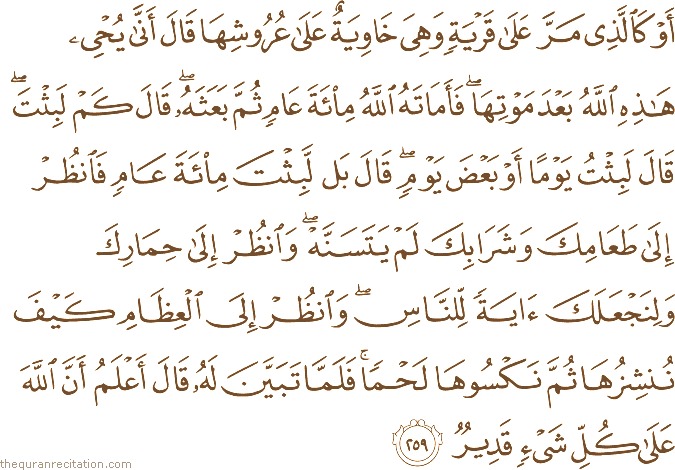 أَوْ كَٱلَّذِى مَرَّ عَلَىٰ قَرْيَةٍ وَهِىَ خَاوِيَةٌ عَلَىٰ عُرُوشِهَا قَالَ أَنَّىٰ يُحْىِۦ
هَـٰذِهِ ٱللَّهُ بَعْدَ مَوْتِهَا ۖ فَأَمَاتَهُ ٱللَّهُ مِا۟ئَةَ عَامٍ ثُمَّ بَعَثَهُۥ ۖ قَالَ كَمْ لَبِثْتَ ۖ
قَالَ لَبِثْتُ يَوْمًا أَوْ بَعْضَ يَوْمٍ ۖ قَالَ بَل لَّبِثْتَ مِا۟ئَةَ عَامٍ فَٱنظُرْ
إِلَىٰ طَعَامِكَ وَشَرَابِكَ لَمْ يَتَسَنَّهْ ۖ وَٱنظُرْ إِلَىٰ حِمَارِكَ
وَلِنَجْعَلَكَ ءَايَةً لِّلنَّاسِ ۖ وَٱنظُرْ إِلَى ٱلْعِظَامِ كَيْفَ
نُنشِزُهَا ثُمَّ نَكْسُوهَا لَحْمًا ۚ فَلَمَّا تَبَيَّنَ لَهُۥ قَالَ أَعْلَمُ أَنَّ ٱللَّهَ
عَلَىٰ كُلِّ شَىْءٍ قَدِيرٌ ٢٥٩
thequranrecitation.com